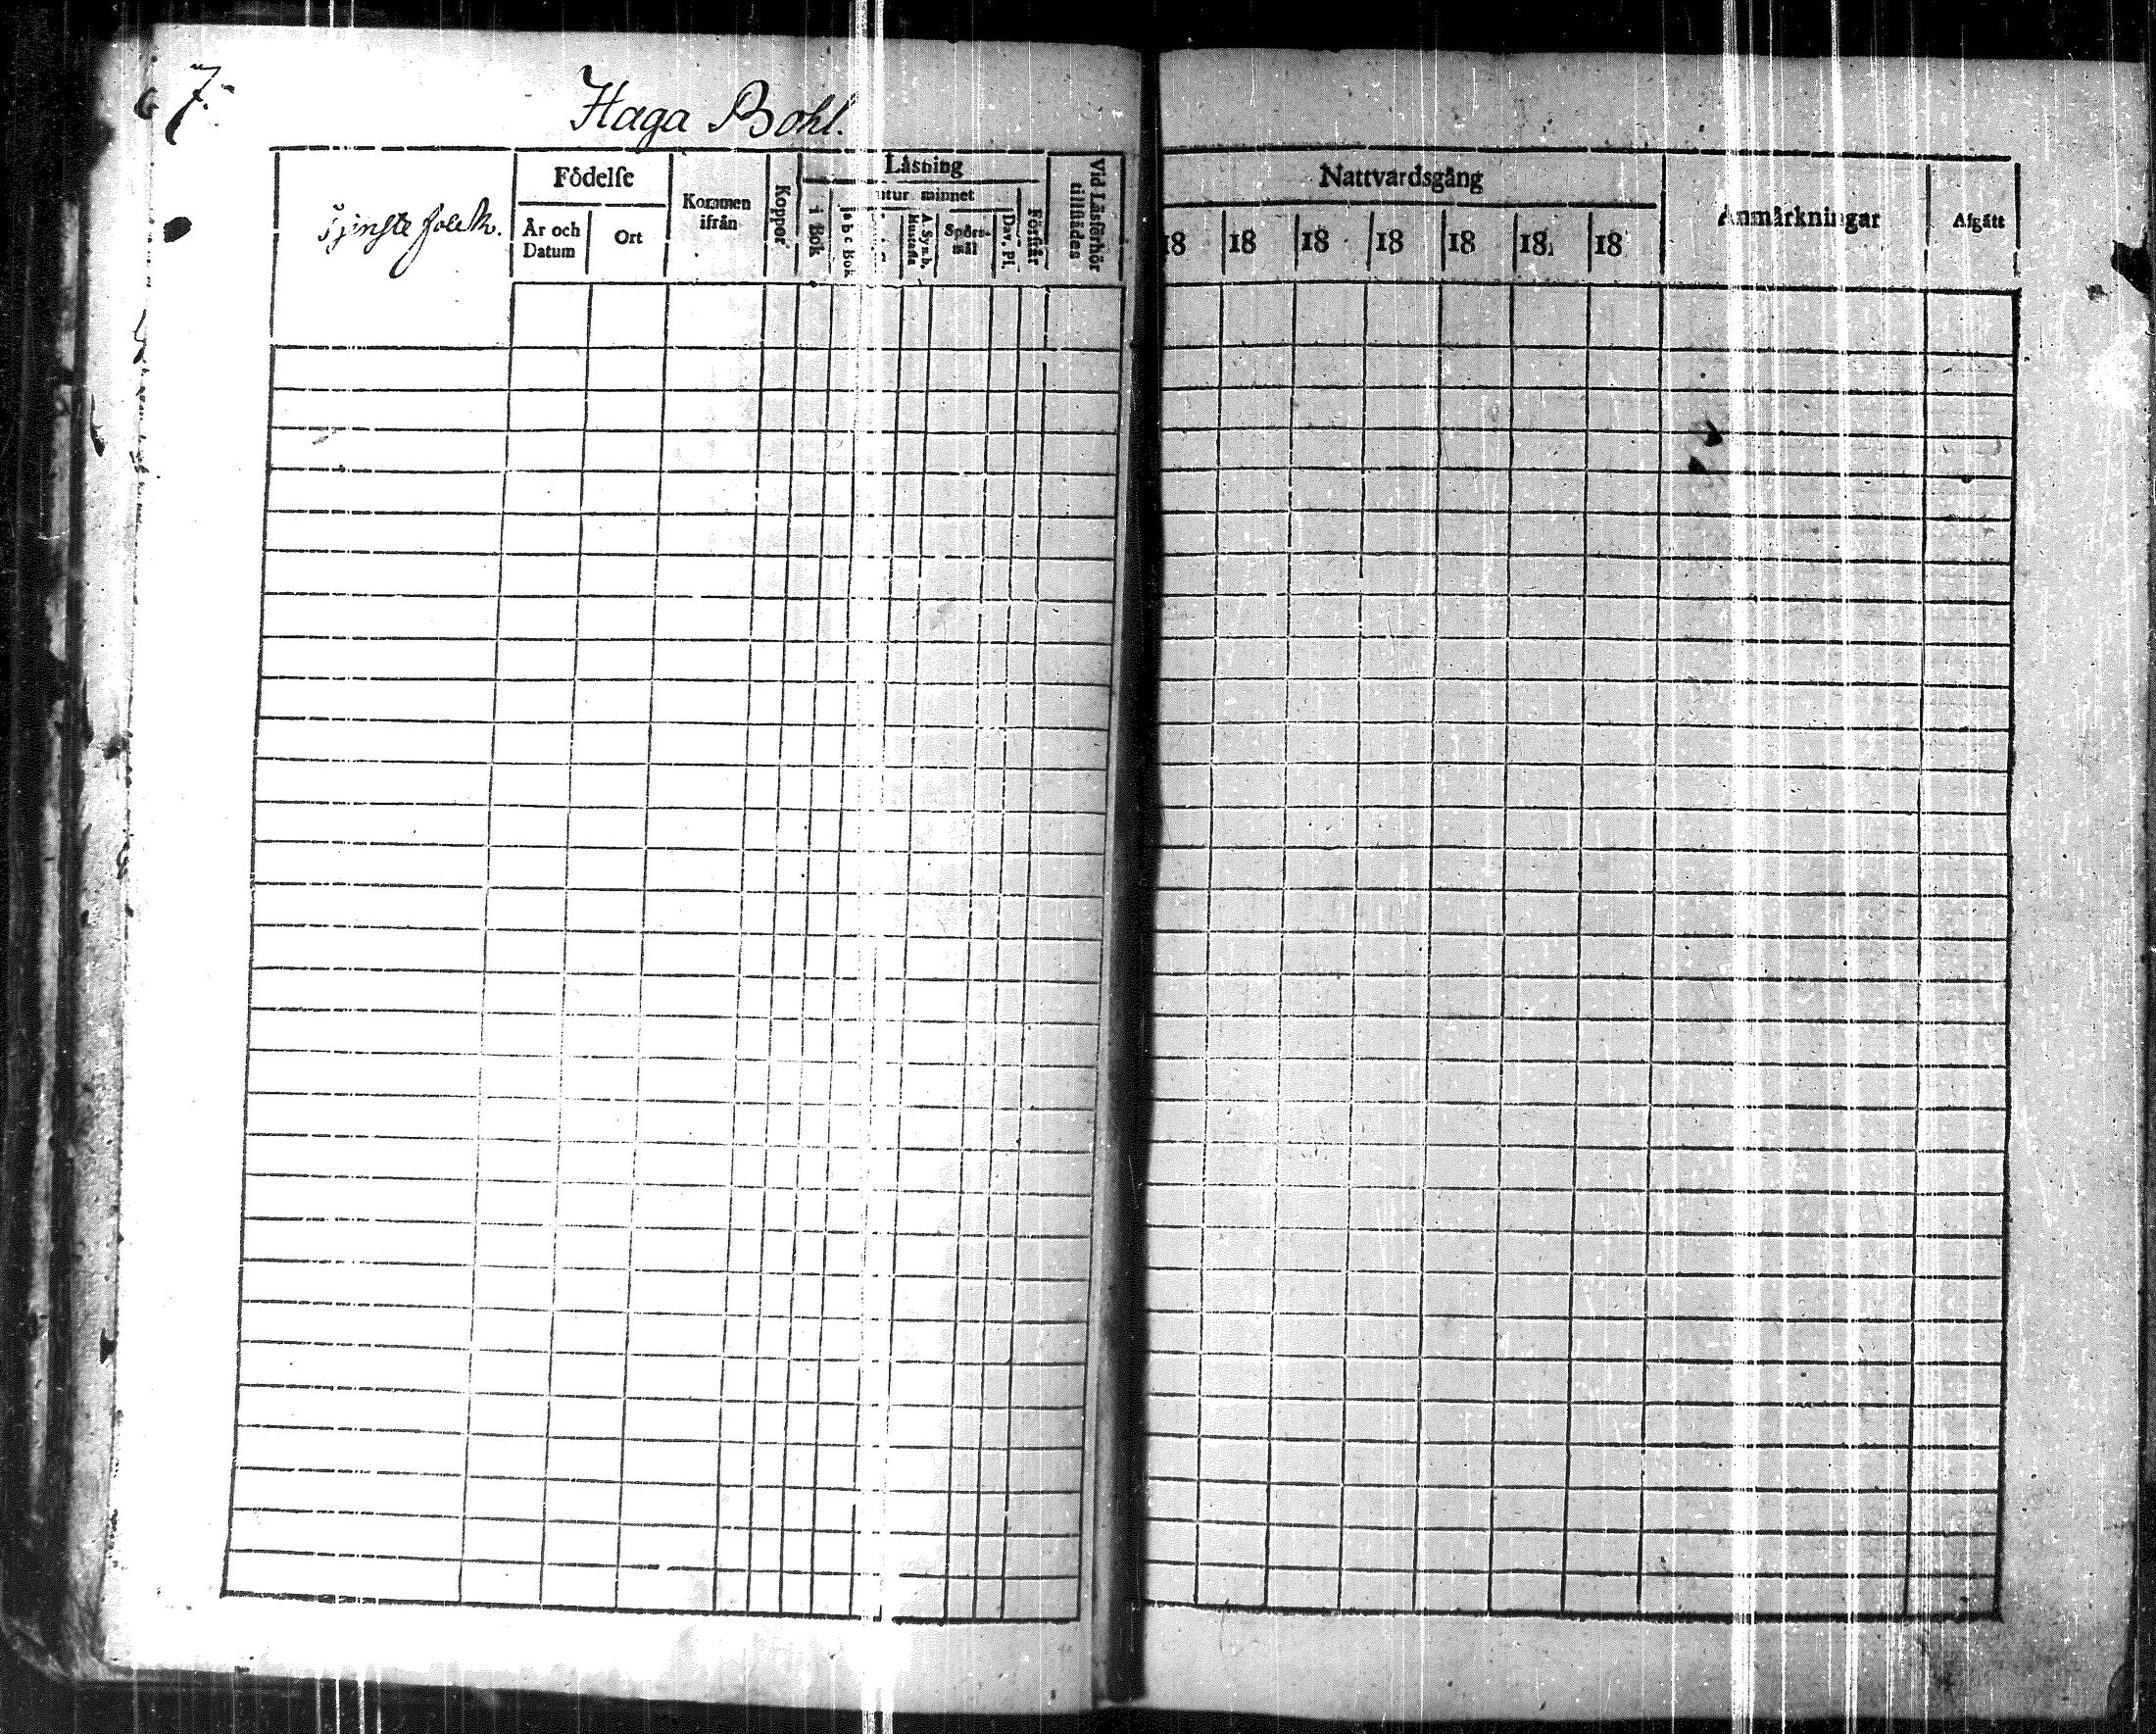 7.
Haga Bohl.
Tjenste folk.
Födelse
År och
Datum
Ort
Kommen
ifrån
Koppor
Läsning
utur minnet
i Bok
a b c Bok
A. Symb.
Spörs-
mål
Dav. Pl.
Förstår
Vid Läsförhör
tillstädes
Nattvardsgång
18 18 18 18 18 18 18
Anmärkningar
Afgått